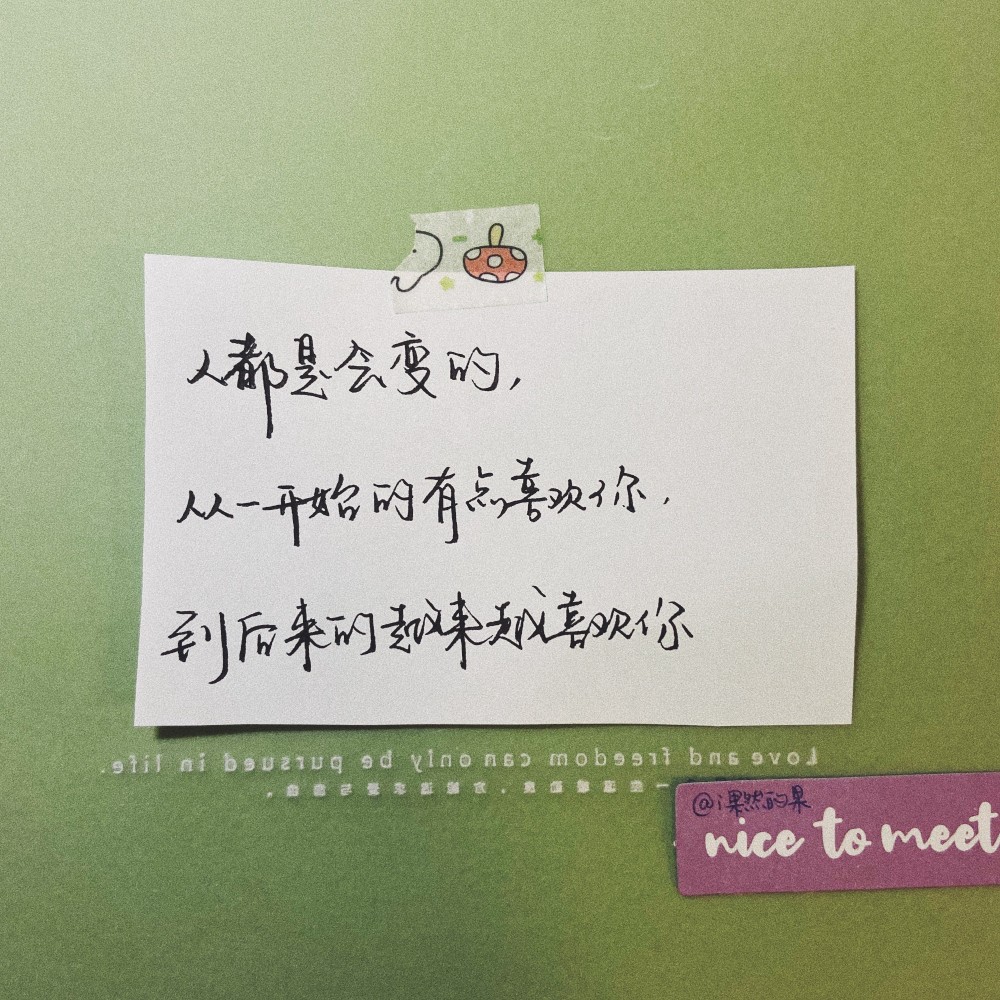 人都是会变的,
从一开始的有点喜欢你.
到后来的越来越喜欢你
Love and freedom can only be pursued in life.
@i果然的果
nice to meet